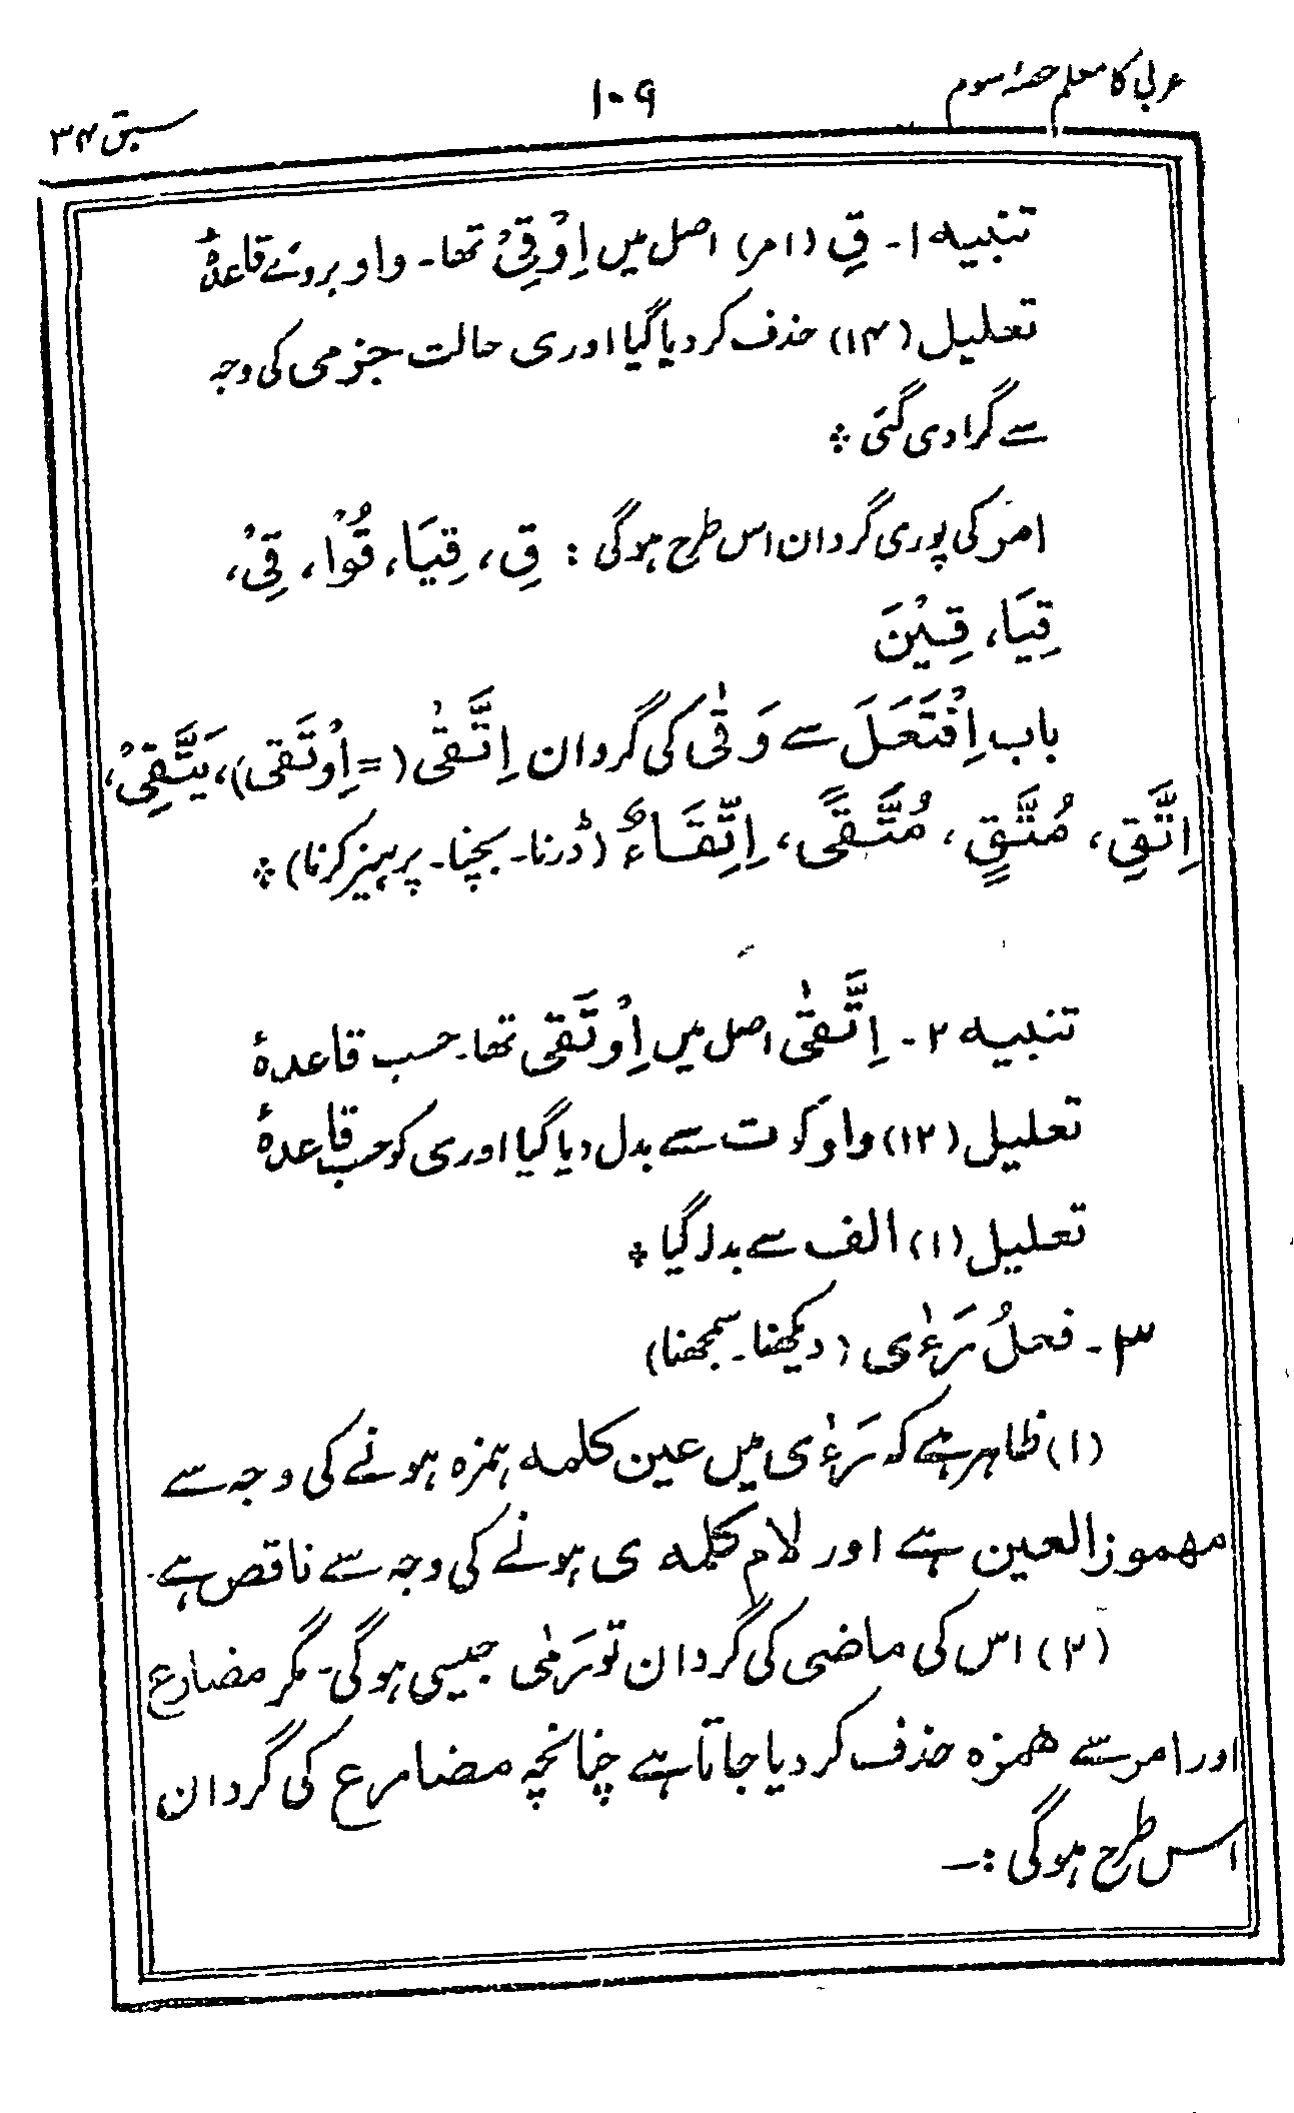 عربی کا معلم حصۂ سوم
۱۰۹
سبق ۳۴
تنبیہ ۱۔ قِ (امر) اصل میں اِوْقِیْ تھا۔ واو بروئے قاعدۂ
تعلیل (۱۴) حذف کر دیا گیا اور ی حالت جزمی کی وجہ
سے گرا دی گئی ؞
امر کی پوری گردان اس طرح ہوگی : قِ، قِیَا، قُوْا، قِیْ،
قِیَا، قِیْنَ
باب اِفْتَعَلَ سے وَقٰی کی گردان اِتَّقٰی (= اِوْتَقَی)، یَتَّقِیْ،
اِتَّقِ، مُتَّقٍ، مُتَّقًی، اِتِّقَاءٌ (ڈرنا۔ بچنا۔ پرہیز کرنا) ؞
تنبیہ ۲۔ اِتَّقٰی اصل میں اِوْتَقَی تھا۔ حسب قاعدۂ
تعلیل (۱۲) واو کو ت سے بدل دیا گیا اور ی کو حسب قاعدۂ
تعلیل (۱) الف سے بدلا گیا ؞
۳۔ فعلُ رَءٰی (دیکھنا۔ سمجھنا)
(۱) ظاہر ہے کہ رَءٰی میں عین کلمہ ہمزہ ہونے کی وجہ سے
مہموز العین ہے اور لام کلمہ ی ہونے کی وجہ سے ناقص ہے۔
(۲) اس کی ماضی کی گردان تو رَمٰی جیسی ہوگی۔ مگر مضارع
اور امر سے ہمزہ حذف کر دیا جاتا ہے چنانچہ مضارع کی گردان
اس طرح ہوگی :۔